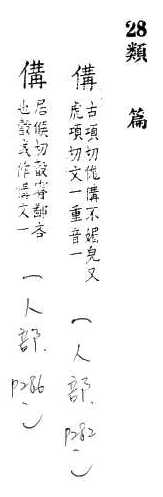 28類篇
傋 古項切傋𠐞不媚皃又虎項切文一重音一 (人部.P282)
傋 居候切㝅瞀鄙吝也㝅或作傋文一 (人部.P286)